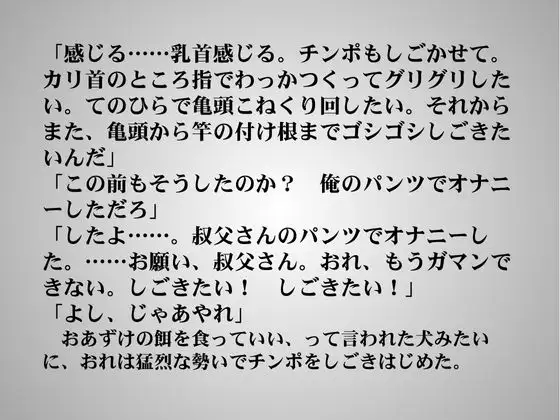 「感じる……乳首感じる。チンポもしごかせて。
カリ首のところ指でわっかつくってグリグリした
い。てのひらで亀頭こねくり回したい。それから
また、亀頭から竿の付け根までゴシゴシしごきた
いんだ」
「この前もそうしたのか？　俺のパンツでオナニ
ーしただろ」
「したよ……。叔父さんのパンツでオナニーし
た。……お願い、叔父さん。おれ、もうガマンで
きない。しごきたい！　しごきたい！」
「よし、じゃあやれ」
　おあずけの餌を食っていい、って言われた犬みたい
に、おれは猛烈な勢いでチンポをしごきはじめた。